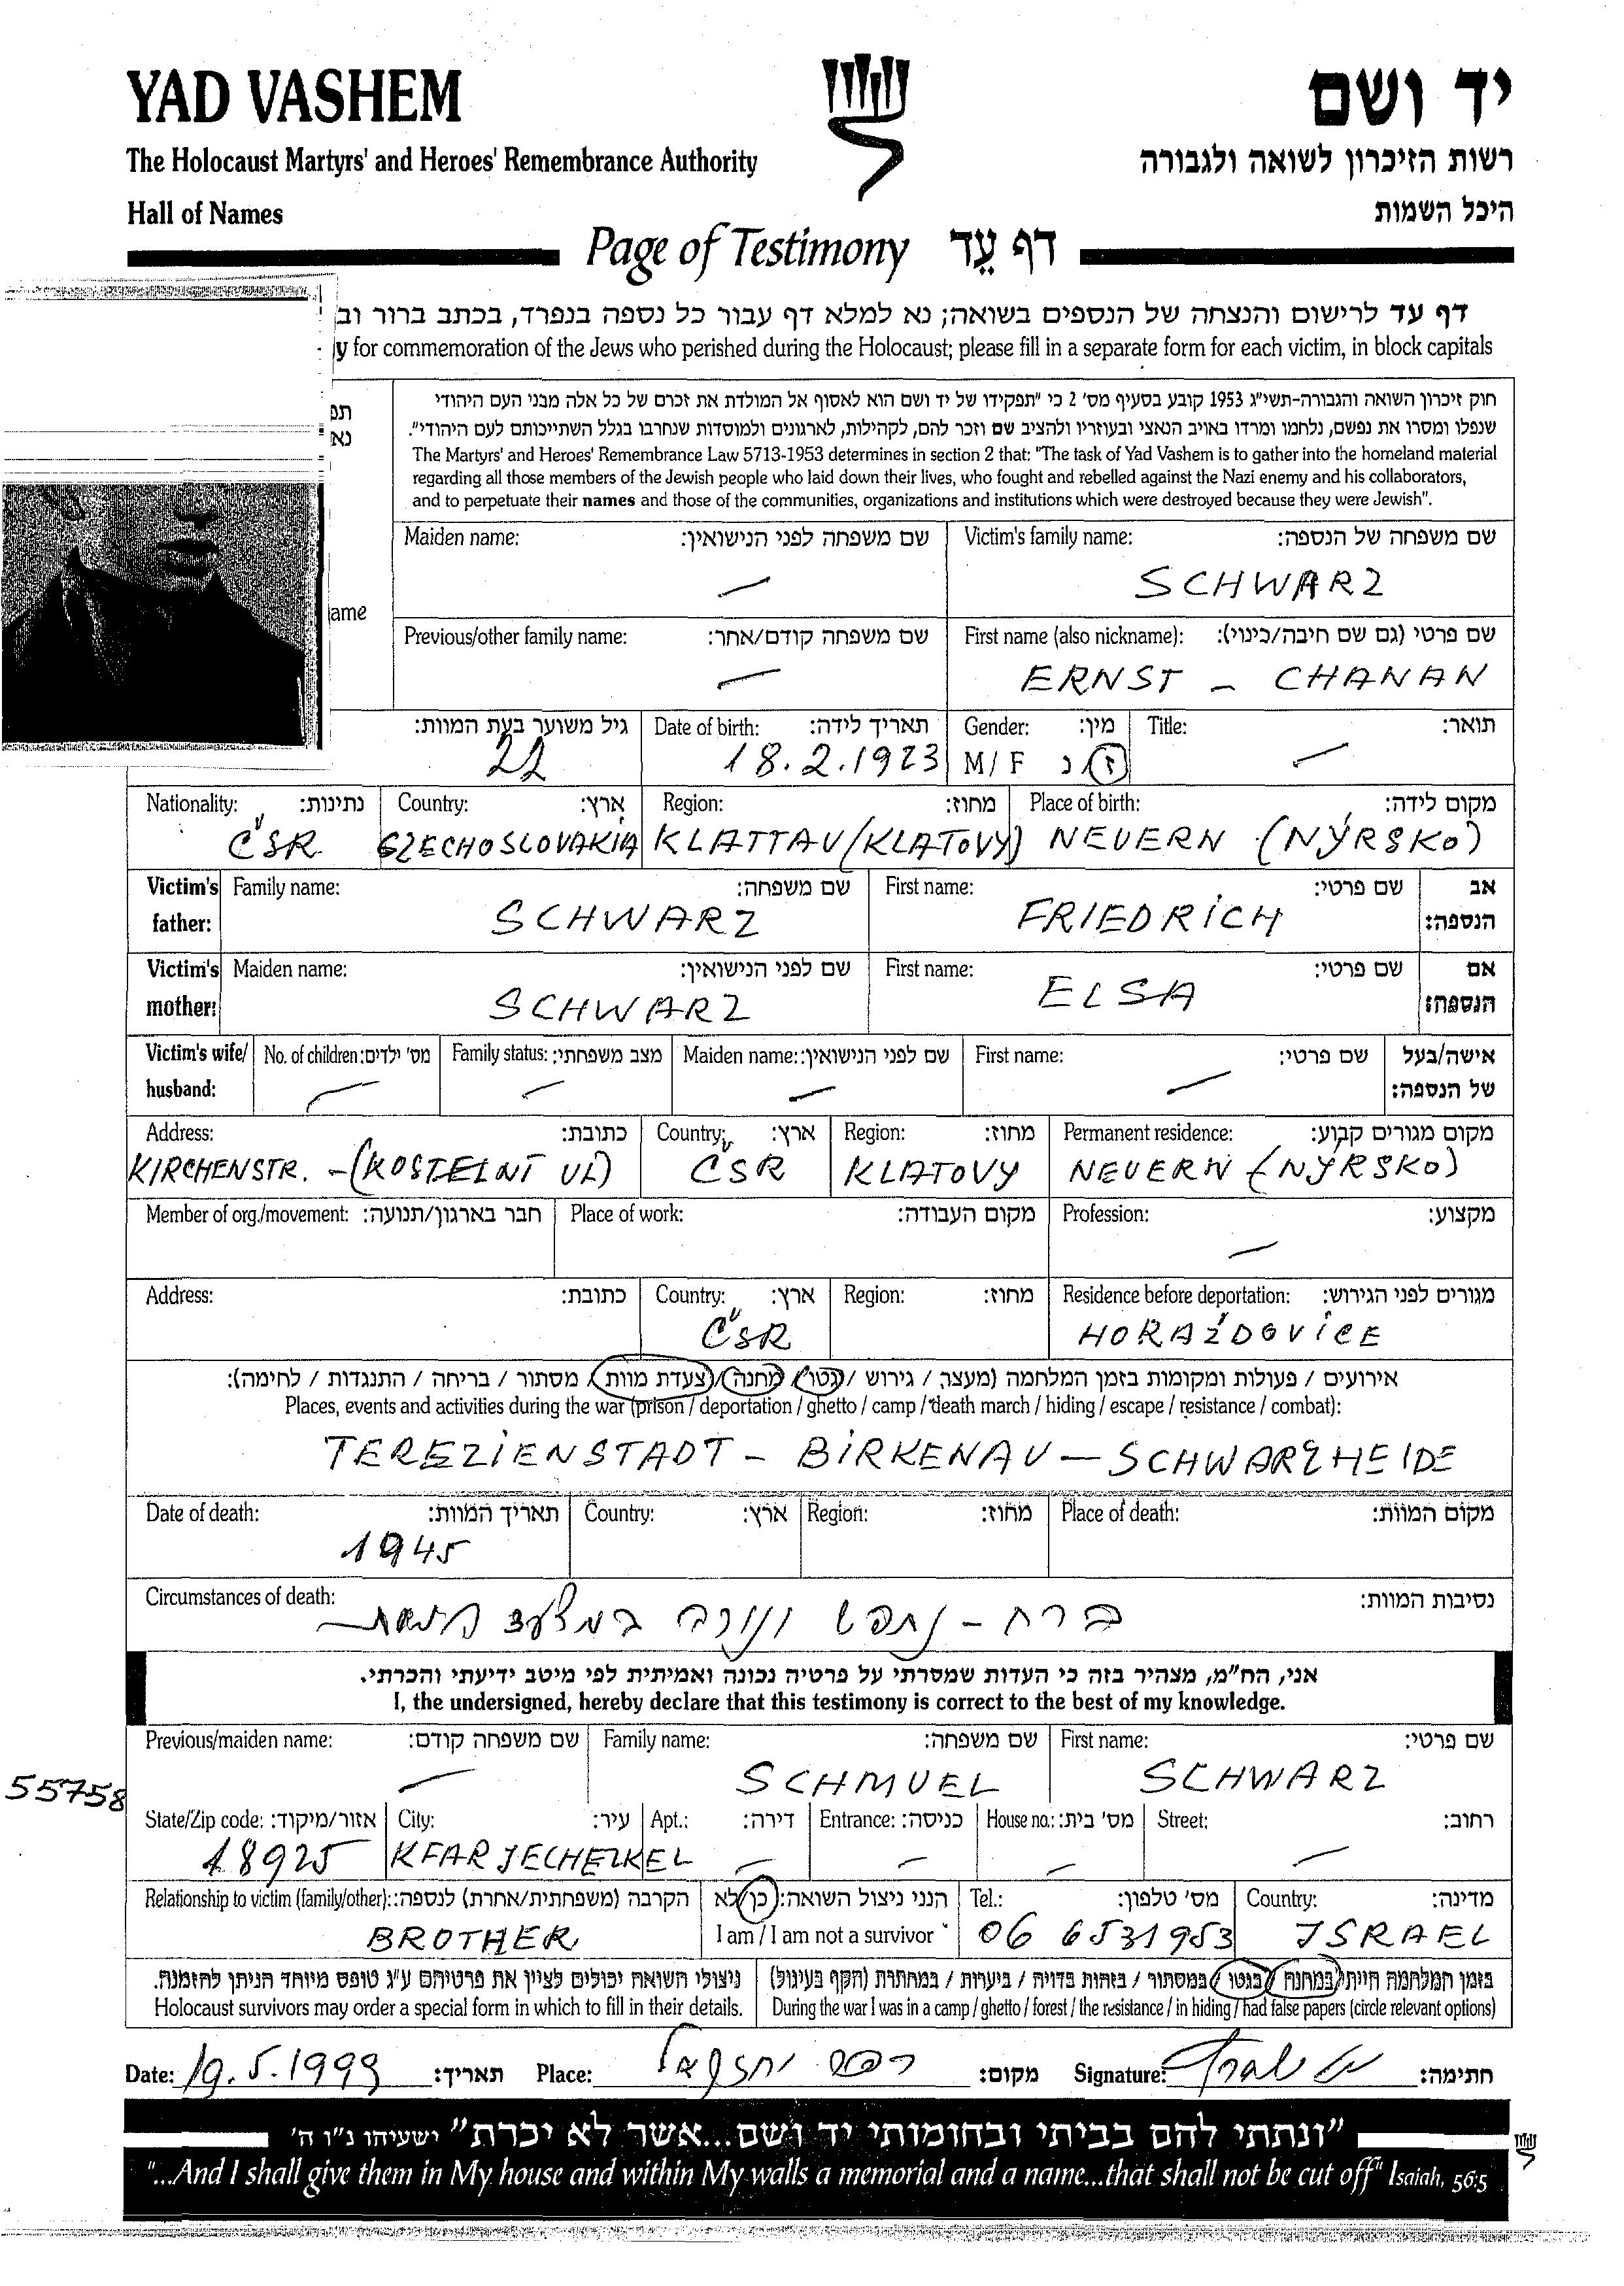 YAD VASHEM
יד ושם
The Holocaust Martyrs' and Heroes' Remembrance Authority
רשות הזיכרון לשואה ולגבורה
Hall of Names
היכל השמות
Page of Testimony דף עֵד
דף עד לרישום והנצחה של הנספים בשואה; נא למלא דף עבור כל נספה בנפרד, בכתב ברור וב
y for commemoration of the Jews who perished during the Holocaust; please fill in a separate form for each victim, in block capitals
חוק זיכרון השואה והגבורה-תשי"ג 1953 קובע בסעיף מס' 2 כי "תפקידו של יד ושם הוא לאסוף אל המולדת את זכרם של כל אלה מבני העם היהודי
שנפלו ומסרו את נפשם, נלחמו ומרדו באויב הנאצי ובעוזריו ולהציב שם וזכר להם, לקהילות, לארגונים ולמוסדות שנחרבו בגלל השתייכותם לעם היהודי".
The Martyrs' and Heroes' Remembrance Law 5713-1953 determines in section 2 that: "The task of Yad Vashem is to gather into the homeland material
regarding all those members of the Jewish people who laid down their lives, who fought and rebelled against the Nazi enemy and his collaborators,
and to perpetuate their names and those of the communities, organizations and institutions which were destroyed because they were Jewish".
תפ
נא
ame
Maiden name: שם משפחה לפני הנישואין: Victim's family name: שם משפחה של הנספה:
— SCHWARZ
Previous/other family name: שם משפחה קודם/אחר: First name (also nickname): שם פרטי (גם שם חיבה/כינוי):
— ERNST – CHANAN
גיל משוער בעת המוות: Date of birth: תאריך לידה: Gender: מין: Title: תואר:
22 18.2.1923 M/F ז נ —
Nationality: נתינות: Country: ארץ: Region: מחוז: Place of birth: מקום לידה:
ČSR CZECHOSLOVAKIA KLATTAU/(KLATOVY) NEUERN (NÝRSKO)
Victim's father: Family name: שם משפחה: First name: שם פרטי: אב הנספה:
SCHWARZ FRIEDRICH
Victim's mother: Maiden name: שם לפני הנישואין: First name: שם פרטי: אם הנספה:
SCHWARZ ELSA
Victim's wife/ husband: No. of children: מס' ילדים: Family status: מצב משפחתי: Maiden name: שם לפני הנישואין: First name: שם פרטי: אישה/בעל של הנספה:
— — — —
Address: כתובת: Country: ארץ: Region: מחוז: Permanent residence: מקום מגורים קבוע:
KIRCHENSTR. –(KOSTELNÍ UL) ČSR KLATOVY NEUERN (NÝRSKO)
Member of org./movement: חבר בארגון/תנועה: Place of work: מקום העבודה: Profession: מקצוע:
—
Address: כתובת: Country: ארץ: Region: מחוז: Residence before deportation: מגורים לפני הגירוש:
ČSR HORAŽDOVICE
אירועים / פעולות ומקומות בזמן המלחמה (מעצר / גירוש / גטו / מחנה / צעדת מוות / מסתור / בריחה / התנגדות / לחימה):
Places, events and activities during the war (prison / deportation / ghetto / camp / death march / hiding / escape / resistance / combat):
TEREZIENSTADT – BIRKENAU – SCHWARZHEIDE
Date of death: תאריך המוות: Country: ארץ: Region: מחוז: Place of death: מקום המוות:
1945
Circumstances of death: נסיבות המוות:
ברח - נתפס ונורה במצעד המוות
אני, הח"מ, מצהיר בזה כי העדות שמסרתי על פרטיה נכונה ואמיתית לפי מיטב ידיעתי והכרתי.
I, the undersigned, hereby declare that this testimony is correct to the best of my knowledge.
Previous/maiden name: שם משפחה קודם: Family name: שם משפחה: First name: שם פרטי:
— SCHMUEL SCHWARZ
55758
State/Zip code: אזור/מיקוד: City: עיר: Apt.: דירה: Entrance: כניסה: House no.: מס' בית: Street: רחוב:
18925 KFAR JECHEZKEL — — — —
Relationship to victim (family/other): הקרבה (משפחתית/אחרת) לנספה: הנני ניצול השואה: כן/לא Tel.: מס' טלפון: Country: מדינה:
BROTHER I am / I am not a survivor 06 6531953 ISRAEL
ניצולי השואה יכולים לציין את פרטיהם ע"ג טופס מיוחד הניתן להזמנה. בזמן המלחמה הייתי במחנה / בגטו / במסתור / בזהות בדויה / ביערות / במחתרת (הקף בעיגול)
Holocaust survivors may order a special form in which to fill in their details. During the war I was in a camp / ghetto / forest / the resistance / in hiding / had false papers (circle relevant options)
Date: 19.5.1999 תאריך: Place: כפר יחזקאל מקום: Signature: חתימה:
"ונתתי להם בביתי ובחומותי יד ושם...אשר לא יכרת" ישעיהו נ"ו ה'
"...And I shall give them in My house and within My walls a memorial and a name...that shall not be cut off" Isaiah, 56:5